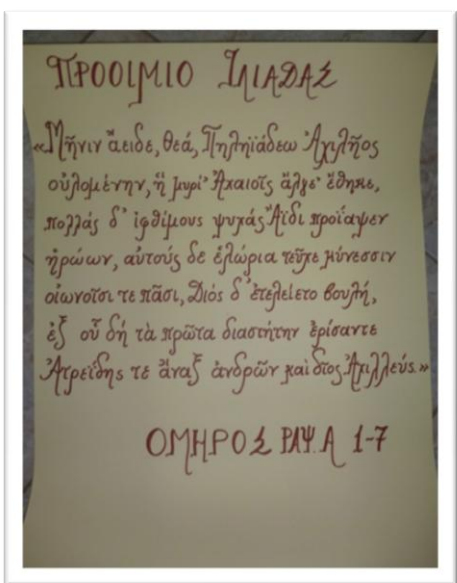 ΠΡΟΟΙΜΙΟ ΙΛΙΑΔΑΣ
«Μῆνιν ἄειδε, θεά, Πηληϊάδεω Ἀχιλῆος
οὐλομένην, ἥ μυρί' Ἀχαιοῖς ἄλγε' ἔθηκε,
πολλάς δ' ἰφθίμους ψυχάς Ἄϊδι προΐαψεν
ἡρώων, αὐτούς δε ἑλώρια τεῦχε κύνεσσιν
οἰωνοῖσι τε πᾶσι, Διός δ' ἐτελείετο βουλή,
ἐξ οὗ δή τὰ πρῶτα διαστήτην ἐρίσαντε
Ἀτρεΐδης τε ἄναξ ἀνδρῶν καὶ δῖος Ἀχιλλεύς.»
ΟΜΗΡΟΣ ΡΑΨ. Α 1-7